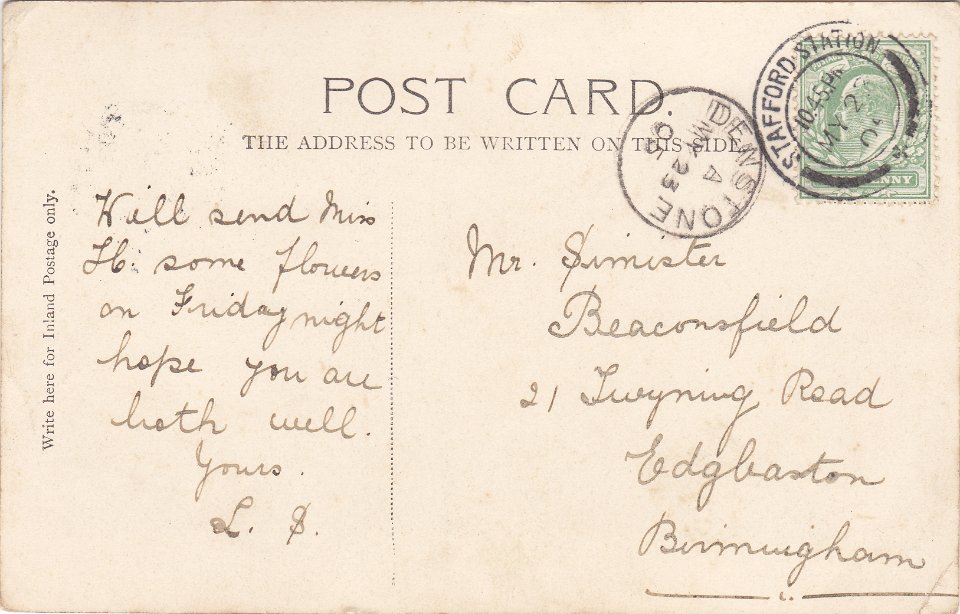 POST CARD.
THE ADDRESS TO BE WRITTEN ON THIS SIDE.
STAFFORD STATION
10.45 PM
MY 2
DENSTONE
A
MY 23
05
NNY
Write here for Inland Postage only.
Will send Miss
H. some flowers
on Friday night
hope you are
both well.
Yours.
L. S.
Mr. Simister
Beaconsfield
21 Twyning Road
Edgbaston
Birmingham